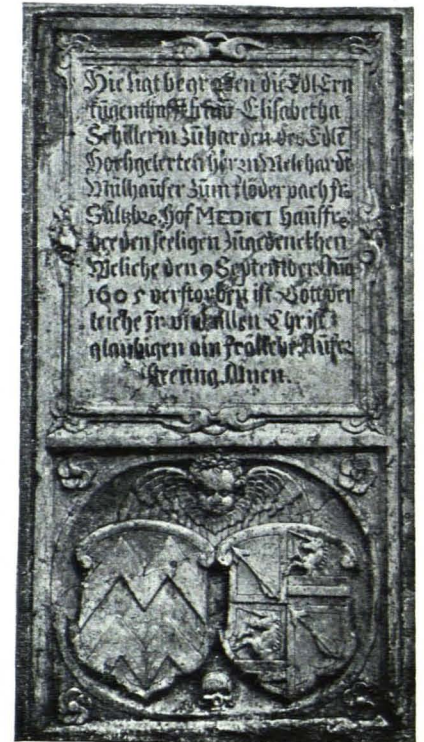 Hie ligt begraben die Edl Ern
tugenthafft frau Elisabetha
Schillerin zu harden des Edlē
Hochgelerten herrn Melchardē
Mülhauser zum
Saltzb: Hof MEDICI hausfr:
den seeligen zugedencthen
Weliche den 9 September Aūo
1605 verstorben ist Gott ver
leiche Ir und allen Christ
glaubigen ain froliche Aufer
steeung. Amen.